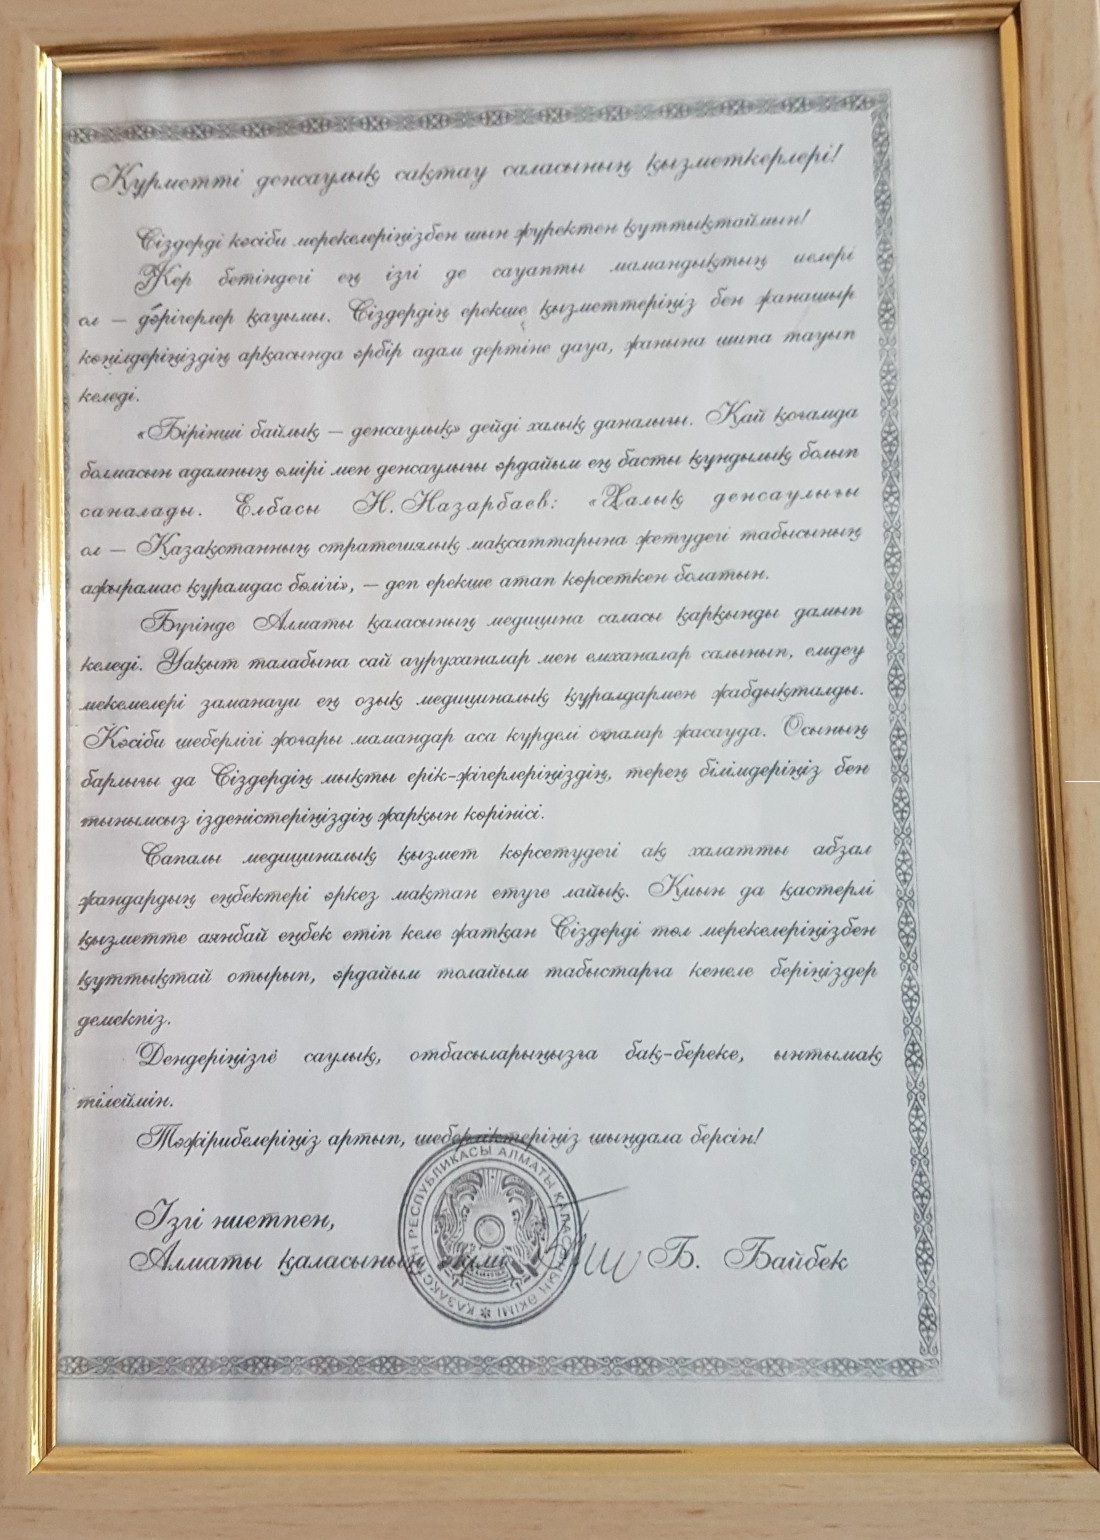 Құрметті денсаулық сақтау саласының қызметкерлері!
Сіздерді кәсіби мерекелеріңізбен шын жүректен құттықтаймын!
Жер бетіндегі ең ізгі де сауапты мамандықтың иелері
ол – дәрігерлер қауымы. Сіздердің ерекше қызметтеріңіз бен жанашыр
көңілдеріңіздің арқасында әрбір адам дертіне дауа, жанына шипа тауып
келеді.
«Бірінші байлық – денсаулық» дейді халық даналығы. Қай қоғамда
болмасын адамның өмірі мен денсаулығы әрдайым ең басты құндылық болып
саналады. Елбасы Н. Назарбаев: «Халық денсаулығы
ол – Қазақстанның стратегиялық мақсаттарына жетудегі табысының
ажырамас құрамдас бөлігі», – деп ерекше атап көрсеткен болатын.
Бүгінде Алматы қаласының медицина саласы қарқынды дамып
келеді. Уақыт талабына сай ауруханалар мен емханалар салынып, емдеу
мекемелері заманауи ең озық медициналық құралдармен жабдықталды.
Кәсіби шеберлігі жоғары мамандар аса күрделі оталар жасауда. Осының
барлығы да Сіздердің мықты ерік-жігерлеріңіздің, терең білімдеріңіз бен
тынымсыз ізденістеріңіздің жарқын көрінісі.
Сапалы медициналық қызмет көрсетудегі ақ халатты абзал
жандардың еңбектері әркез мақтан етуге лайық. Қиын да қастерлі
қызметте аянбай еңбек етіп келе жатқан Сіздерді төл мерекелеріңізбен
құттықтай отырып, әрдайым толайым табыстарға кенеле беріңіздер
демекпіз.
Дендеріңізге саулық, отбасыларыңызға бақ-береке, ынтымақ
тілеймін.
Тәжірибелеріңіз артып, шеберліктеріңіз шыңдала берсін!
Ізгі ниетпен,
Алматы қаласының әкімі Б. Байбек
ҚАЗАҚСТАН РЕСПУБЛИКАСЫ АЛМАТЫ ҚАЛАСЫНЫҢ ӘКІМІ